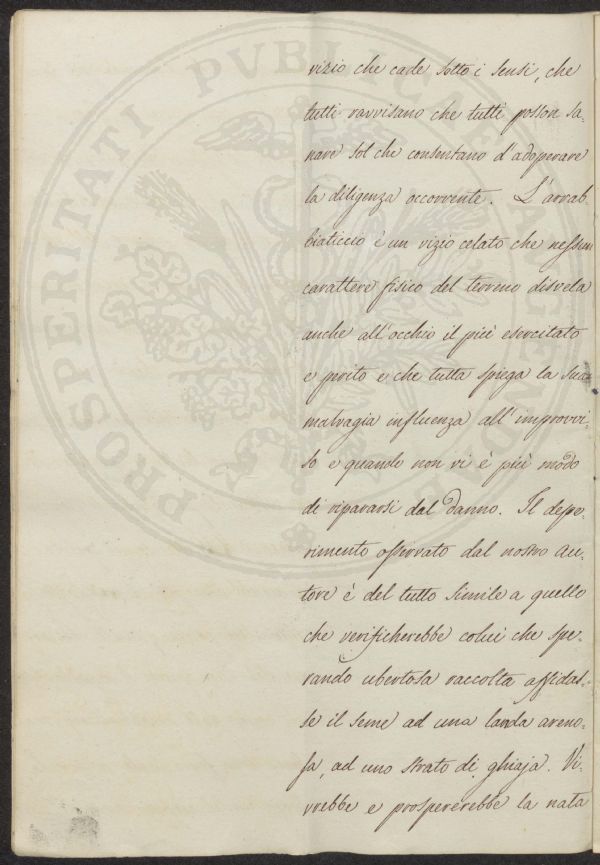 vizio che cade sotto i sensi, che
tutti ravvisano che tutti posson sa-
nare sol che consentano d'adoperare
la diligenza occorrente. L'arrab-
biaticcio è un vizio celato che nessun
carattere fisico del terreno disvela
anche all'occhio il più esercitato
e perito e che tutta spiega la sua
malvagia influenza all'improvvi-
so e quando non vi è più modo
di ripararsi dal danno. Il depe-
rimento osservato dal nostro au-
tore è del tutto simile a quello
che verificherebbe colui che spe-
rando ubertosa raccolta affidas-
se il seme ad una landa areno-
sa, ad uno strato di ghiaja. Vi-
vrebbe e prospererebbe la nata
PROSPERITATI PVBLICAE AVGENDAE